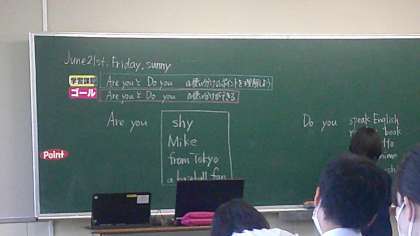 June 21st, Friday, sunny
学習課題 Are you と Do you の使い分けのポイントを理解しよう
ゴール Are you と Do you の使い分けができる
Are you
shy
Mike
from Tokyo
a baseball fan
Do you
speak English
book
Point